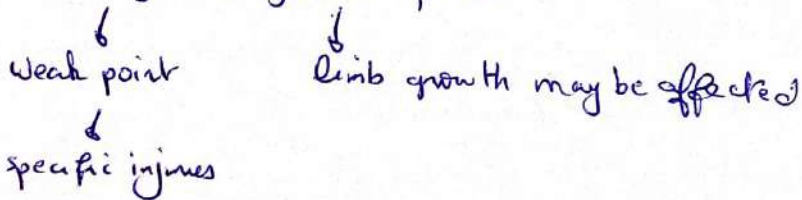 weak point limb growth may be affected
specific injuries